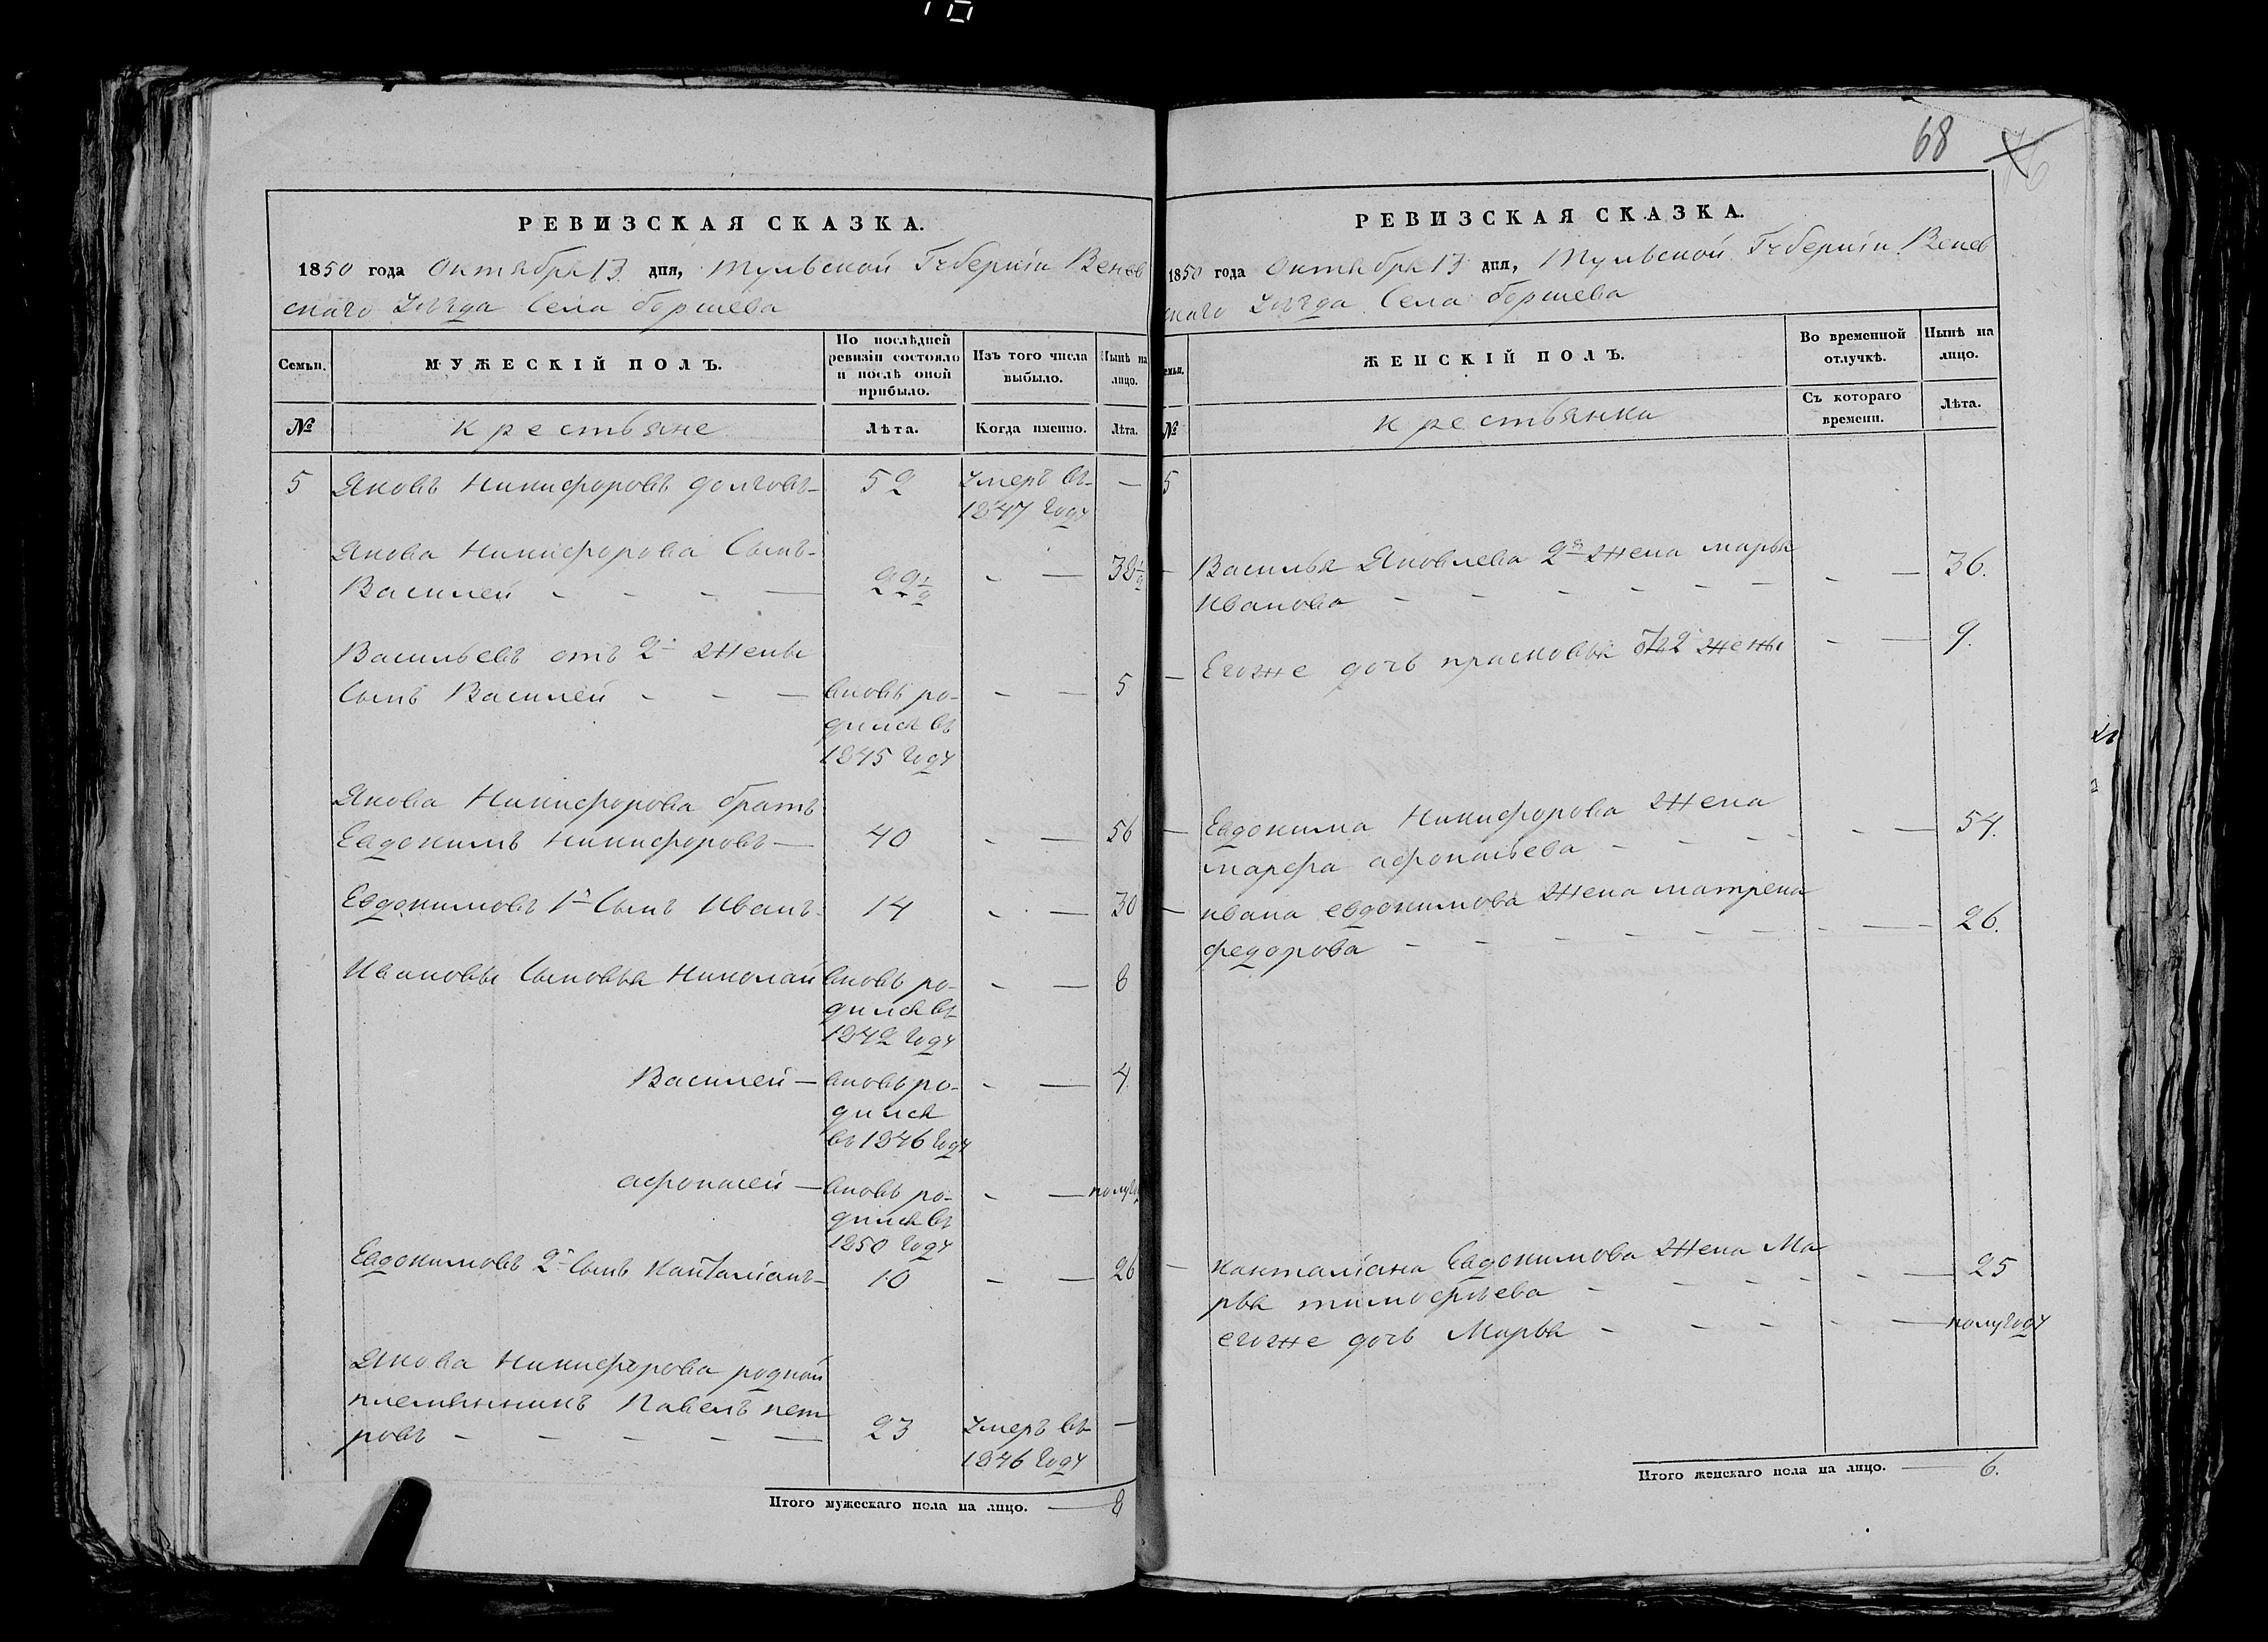 68
76
РЕВИЗСКАЯ СКАЗКА.
1850 года Октября 13 дня, Тульской Губерніи Венев
скаго Уѣзда Села Борщева
Семьи.
МУЖЕСКІЙ ПОЛЪ.
По послѣдней
ревизіи состояло
и послѣ оной
прибыло.
Изъ того числа
выбыло.
Нынѣ на
лицо.
№
крестьяне
Лѣта.
Когда именно.
Лѣта.
5 Яковъ Никифоровъ Долговъ 52 умеръ въ
1847 году
Якова Никифорова Сынъ
Василей 22 1/2 38 1/2
Васильевъ отъ 2й жены
Сынъ Василей вновь ро- 5
дился въ
1845 году
Якова Никифорова братъ
Евдокимъ Никифоровъ 40 56
Евдокимовъ 1й Сынъ Иванъ 14 30
Ивановы Сыновья Николай вновь ро- 8
дился въ
1842 году
Василей вновь ро- 4
дился
въ 1846 году
афонасей вновь ро- полуго
дился въ
1850 году
Евдокимовъ 2й Сынъ Канталіанъ 10 26
Якова Никифорова родной
племянникъ Павелъ пет
ровъ 23 умеръ въ
1846 году
Итого мужескаго пола на лицо. 8
РЕВИЗСКАЯ СКАЗКА.
1850 года Октября 13 дня, Тульской Губерніи Венев
скаго Уѣзда Села Борщева
емьи.
ЖЕНСКІЙ ПОЛЪ.
Во временной
отлучкѣ.
Нынѣ на
лицо.
№
крестьянки
Съ котораго
времени.
Лѣта.
5
Василья Яковлева 2я жена марья
Иванова 36.
Егоже дочь прасковья отъ 2й жены 9.
Евдокима Никифорова жена
марфа афонасьева 54.
ивана евдокимова жена матрена
федорова 26.
канталіана Евдокимова жена Ма
рья тимофѣева 25
егоже дочь Марья полугоду
Итого женскаго пола на лицо. 6.